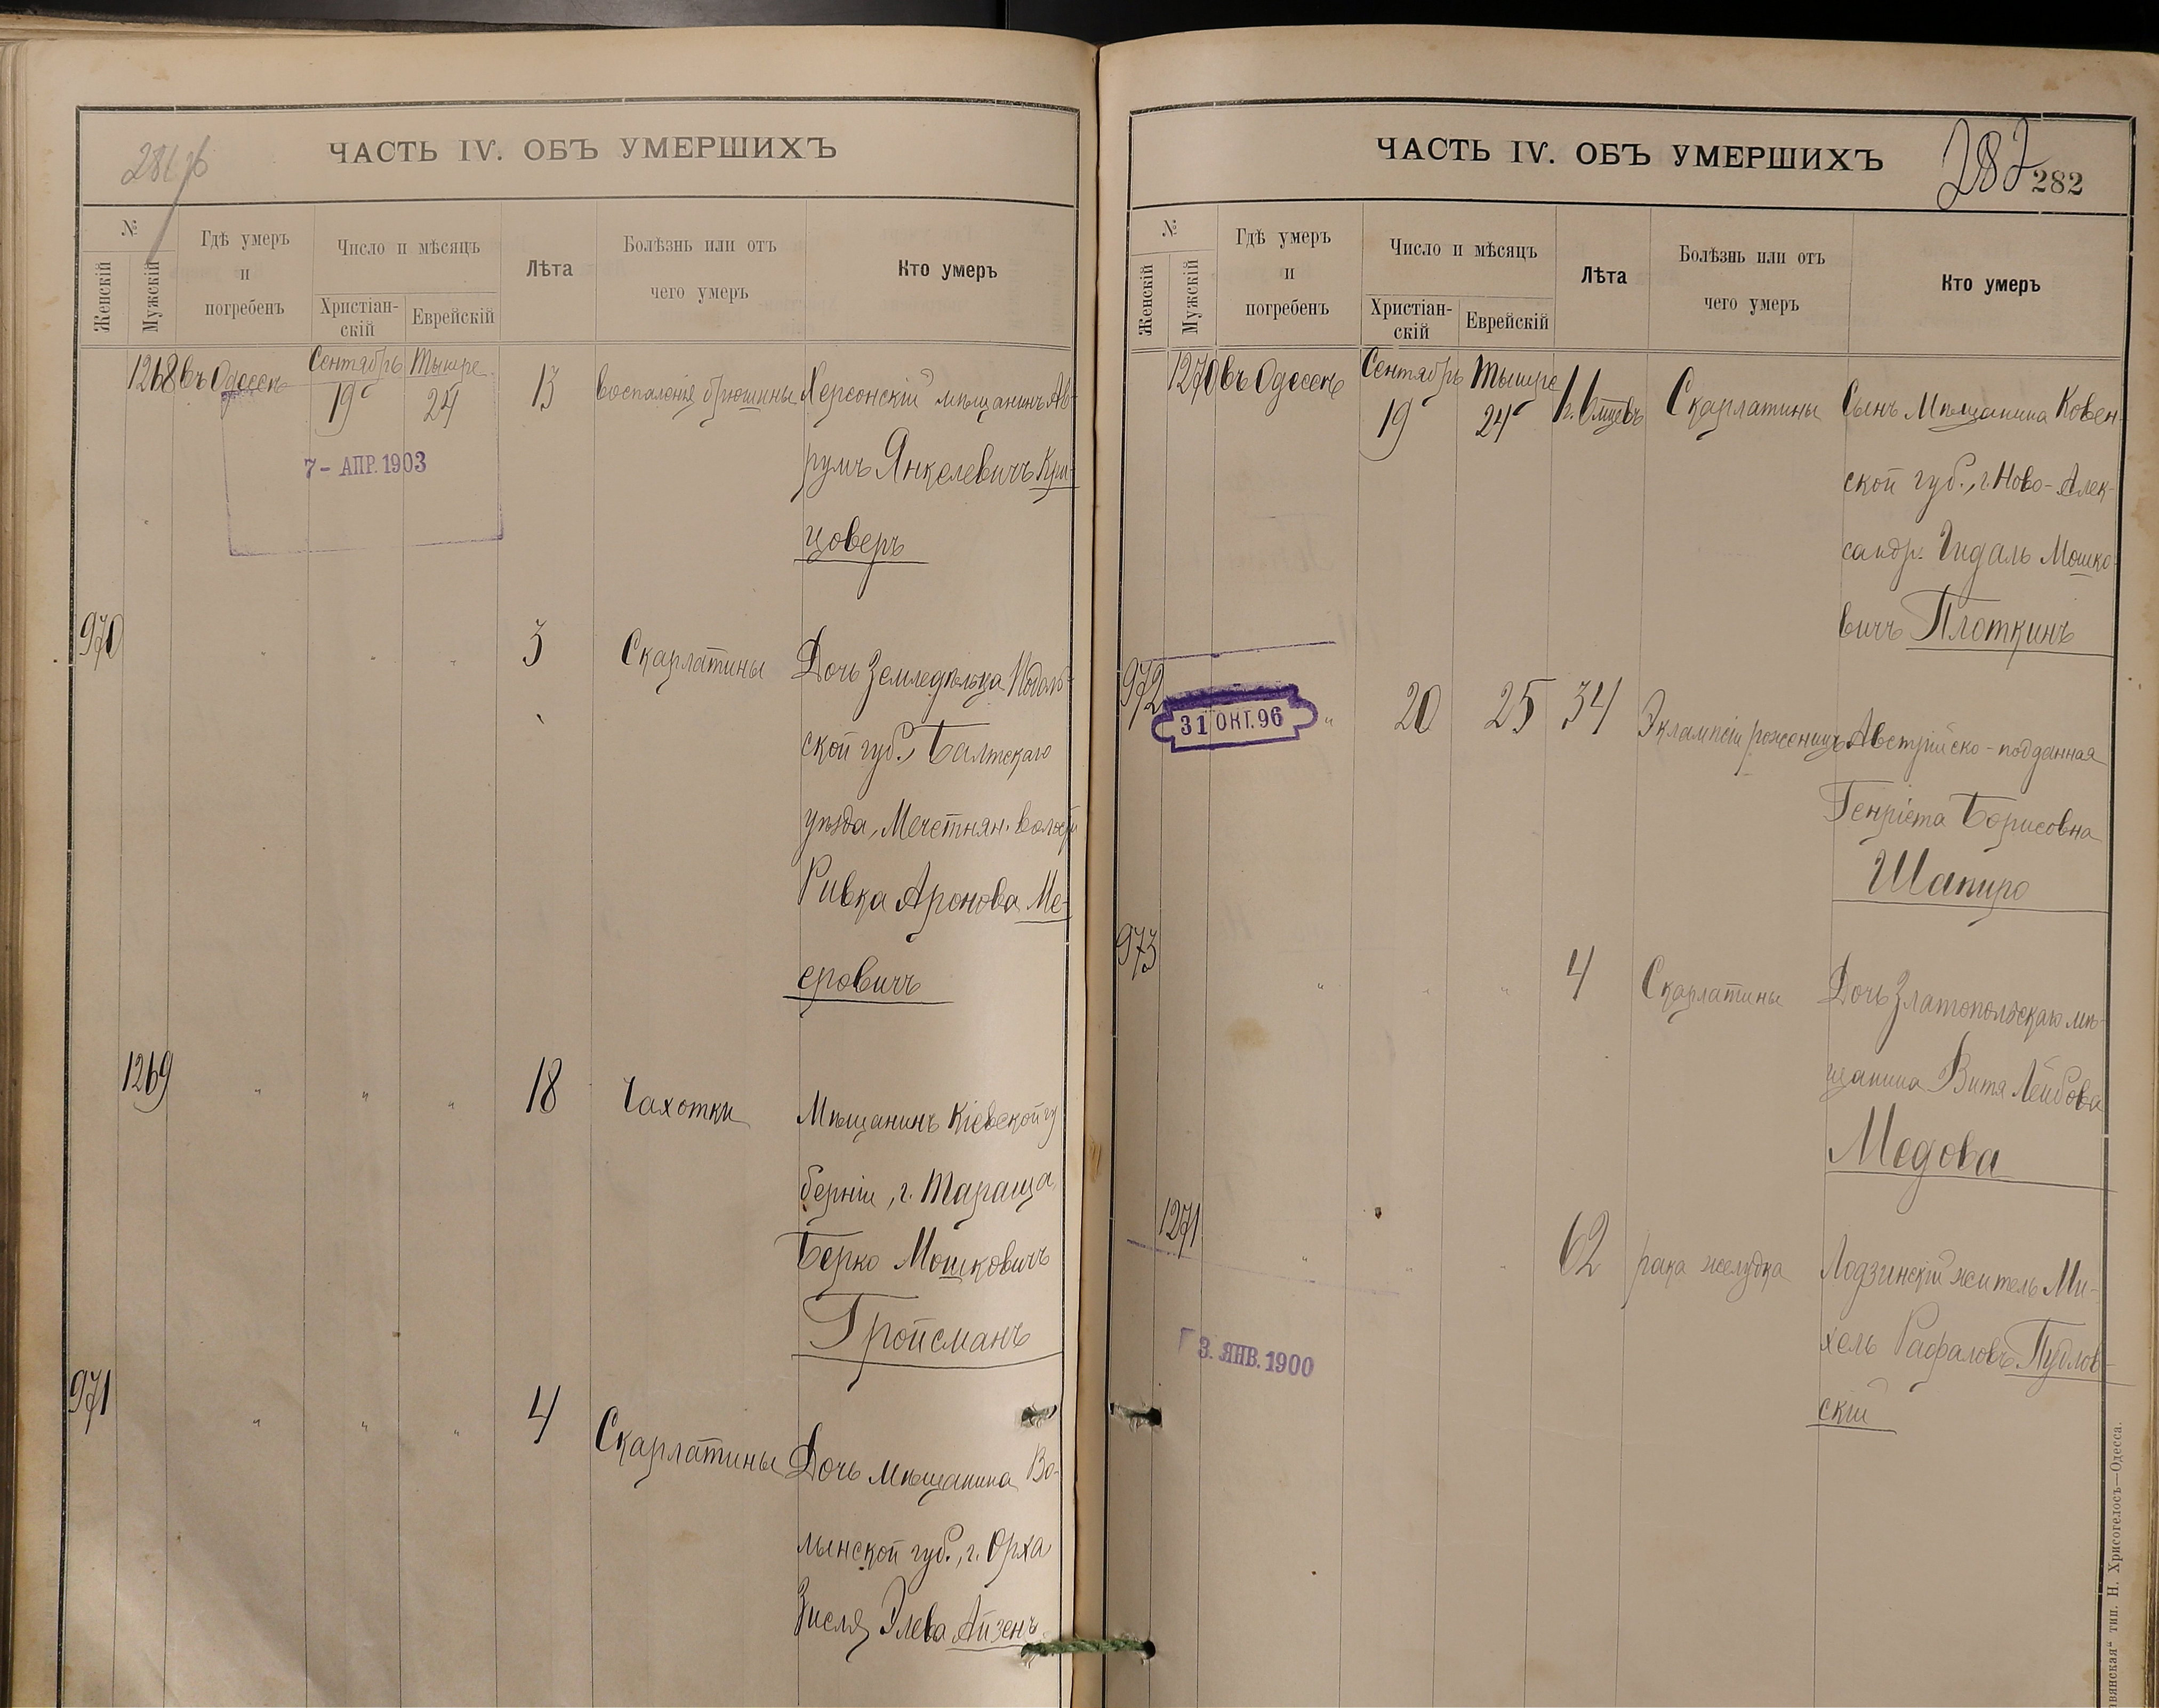 281 об
ЧАСТЬ IV. ОБЪ УМЕРШИХЪ
№
Женскій
Мужскій
Гдѣ умеръ
и
погребенъ
Число и мѣсяцъ
Христіан-
скій
Еврейскій
Лѣта
Болѣзнь или отъ
чего умеръ
Кто умеръ
1268 въ Одессѣ Сентябрь 19 Тышре 24 13 воспаленія брюшины Херсонскій мѣщанинъ Ав-
румъ Янкелевичъ Кри-
цоверъ
7- АПР. 1903
970 " " " 3 Скарлатины Дочь Земледѣльца Подоль-
ской губ., Балтскаго
уѣзда, Мечетнян. волости
Ривка Аронова Ме-
еровичъ
1269 " " " 18 Чахотки Мѣщанинъ Кіевской гу
берніи, г. Тараща
Берко Мошковичъ
Гройсманъ
971 " " " 4 Скарлатины Дочь мѣщанина Во-
лынской губ., г.
Зисля Элева Айзенъ
ЧАСТЬ IV. ОБЪ УМЕРШИХЪ
282
282
№
Женскій
Мужскій
Гдѣ умеръ
и
погребенъ
Число и мѣсяцъ
Христіан-
скій
Еврейскій
Лѣта
Болѣзнь или отъ
чего умеръ
Кто умеръ
1270 въ Одессѣ Сентябрь 19 Тышре 24 Скарлатины Сынъ Мѣщанина Ковен-
ской губ., г. Ново-Алек-
сандр. Гидаль Мошко-
вичъ Плоткинъ
972 " 20 25 34 Эклампсіи роженицъ Австрійско-подданная
31 ОКТ. 96
Генріета Борисовна
Шапиро
973 " " " 4 Скарлатины Дочь Златопольскаго мѣ-
щанина Витя Лейбова
Медова
1271 " " " 62 рака желудка Лодзинскій житель Ми-
хель Рафаловъ Пудлов-
скій
3. ЯНВ. 1900
тип. Н. Хрисогелосъ—Одесса.